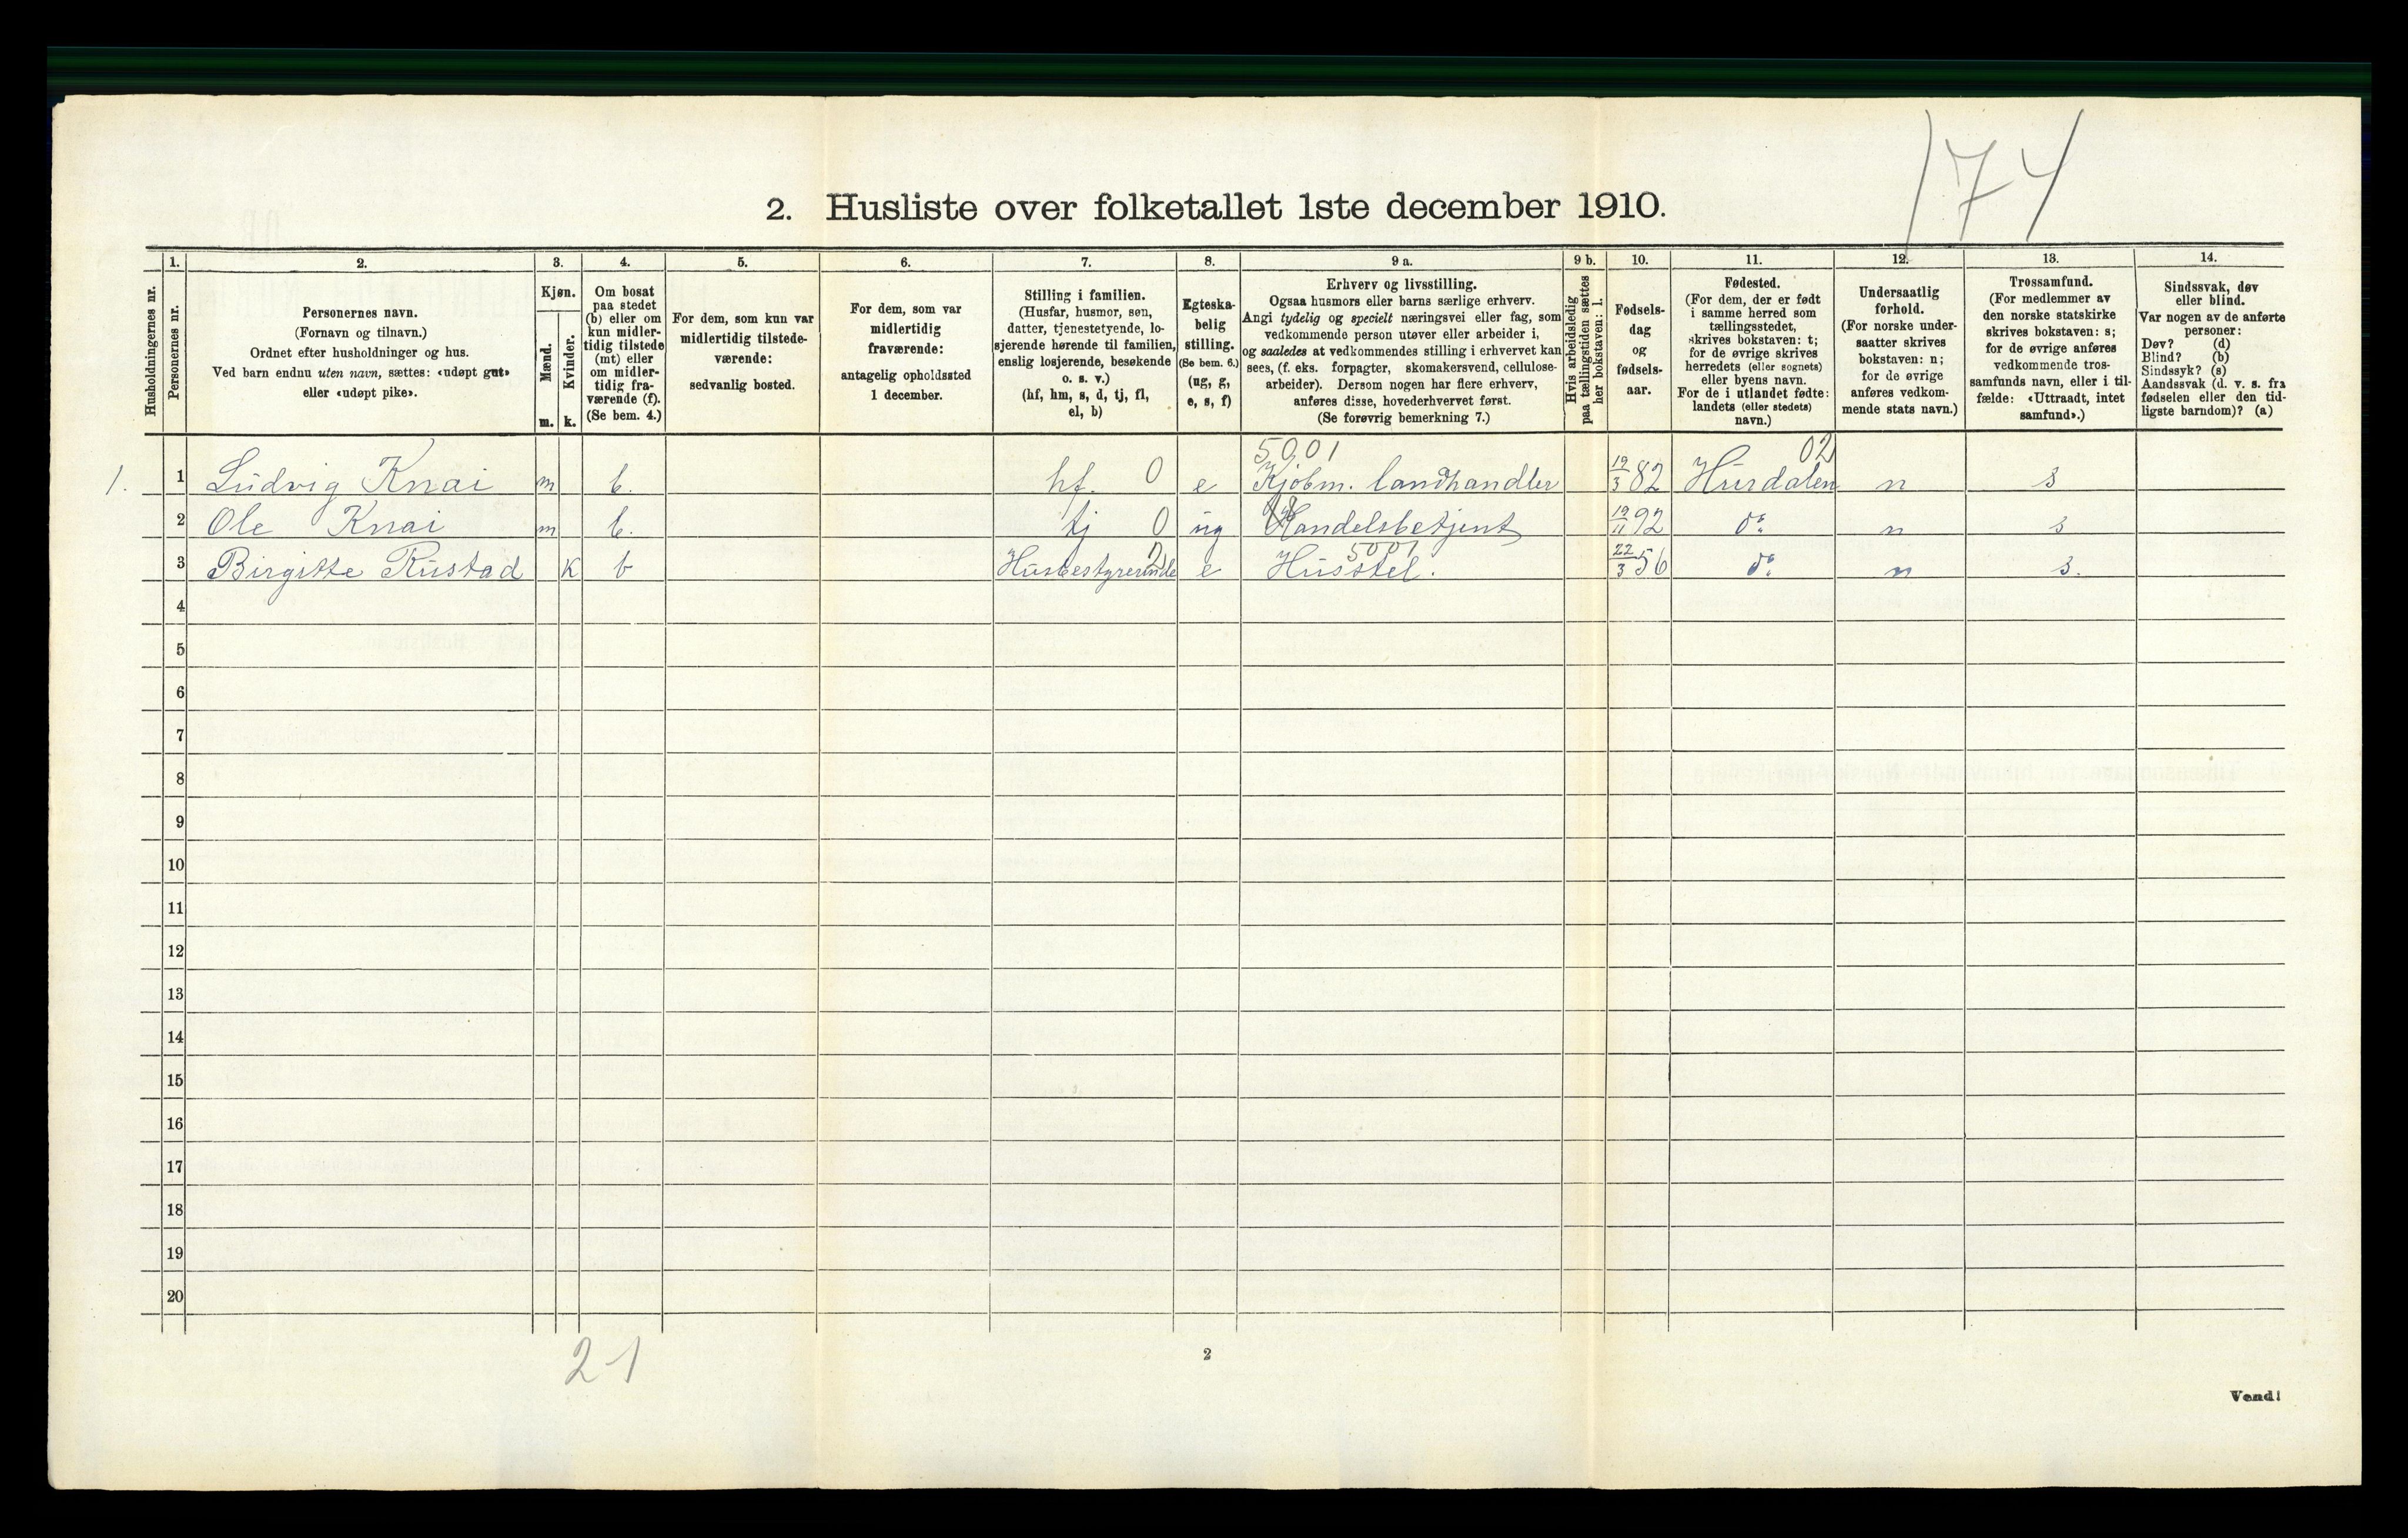 174
2. Husliste over folketallet 1ste december 1910.
Husholdningernes nr.
1.
Personernes nr.
2.
Personernes navn.
(Fornavn og tilnavn.)
Ordnet efter husholdninger og hus.
Ved barn endnu uten navn, sættes: «udøpt gut»
eller «udøpt pike».
3.
Kjøn.
Mænd.
Kvinder.
m. k.
4.
Om bosat
paa stedet
(b) eller om
kun midler-
tidig tilstede
(mt) eller
om midler-
tidig fra-
værende (f).
(Se bem. 4.)
5.
For dem, som kun var
midlertidig tilstede-
værende:
sedvanlig bosted.
6.
For dem, som var
midlertidig
fraværende:
antagelig opholdssted
1 december.
7.
Stilling i familien.
(Husfar, husmor, søn,
datter, tjenestetyende, lo-
sjerende hørende til familien,
enslig losjerende, besøkende
o. s. v.)
(hf, hm, s, d, tj, fl,
el, b)
8.
Egteska-
belig
stilling.
(Se bem. 6.)
(ug, g,
e, s, f)
9 a.
Erhverv og livsstilling.
Ogsaa husmors eller barns særlige erhverv.
Angi tydelig og specielt næringsvei eller fag, som
vedkommende person utøver eller arbeider i,
og saaledes at vedkommendes stilling i erhvervet kan
sees, (f. eks. forpagter, skomakersvend, cellulose-
arbeider). Dersom nogen har flere erhverv,
anføres disse, hovederhvervet først.
(Se forøvrig bemerkning 7.)
9 b.
Hvis arbeidsledig
paa tællingstiden sættes
her bokstaven: l.
10.
Fødsels-
dag
og
fødsels-
aar.
11.
Fødested.
(For dem, der er født
i samme herred som
tællingsstedet,
skrives bokstaven: t;
for de øvrige skrives
herredets (eller sognets)
eller byens navn.
For de i utlandet fødte:
landets (eller stedets)
navn.)
12.
Undersaatlig
forhold.
(For norske under-
saatter skrives
bokstaven: n;
for de øvrige
anføres vedkom-
mende stats navn.)
13.
Trossamfund.
(For medlemmer av
den norske statskirke
skrives bokstaven: s;
for de øvrige anføres
vedkommende tros-
samfunds navn, eller i til-
fælde: «Uttraadt, intet
samfund».)
14.
Sindssvak, døv
eller blind.
Var nogen av de anførte
personer:
Døv? (d)
Blind? (b)
Sindssyk? (s)
Aandssvak (d. v. s. fra
fødselen eller den tid-
ligste barndom)? (a)
5001 02
1. 1 Ludvig Knai m b. hf. 0 e Kjøbm. landhandler 19/3 82 Hurdalen n s
2 Ole Knai m b. tj 0 ug Handelsbetjent 19/11 92 do n s
5001
3 Birgitte Rustad K b Husbestyrerinde e Husstel. 22/3 56 do n s.
4
5
6
7
8
9
10
11
12
13
14
15
16
17
18
19
20
2-1
2
Vend!